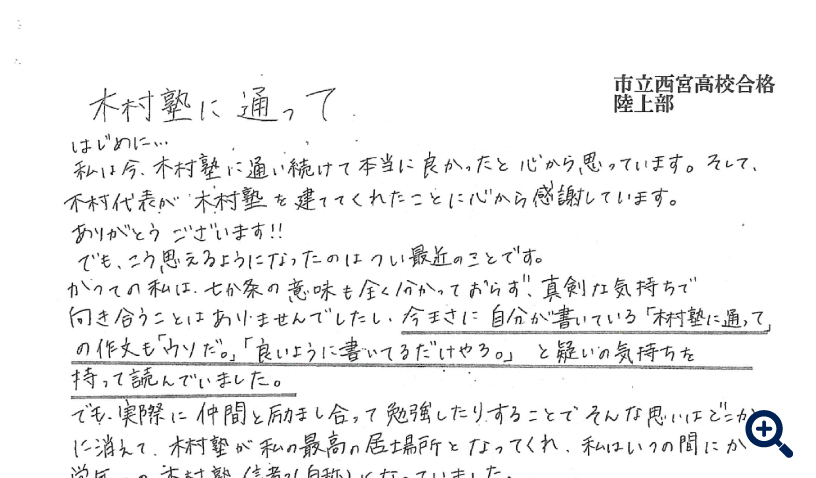 市立西宮高校合格
陸上部
木村塾に通って
はじめに…
私は今、木村塾に通い続けて本当に良かったと心から思っています。そして、
木村代表が木村塾を建ててくれたことに心から感謝しています。
ありがとうございます!!
でも、こう思えるようになったのはつい最近のことです。
かつての私は、七か条の意味も全く分かっておらず、真剣な気持ちで
向き合うことはありませんでしたし、今まさに自分が書いている「木村塾に通って」
の作文も「ウソだ。」「良いように書いてるだけやろ。」と疑いの気持ちを
持って読んでいました。
でも、実際に仲間と励まし合って勉強したりすることでそんな思いはどこか
に消えて、木村塾が私の最高の居場所となってくれ、私はいつの間にか
の木村塾信者(自称)になっていました。